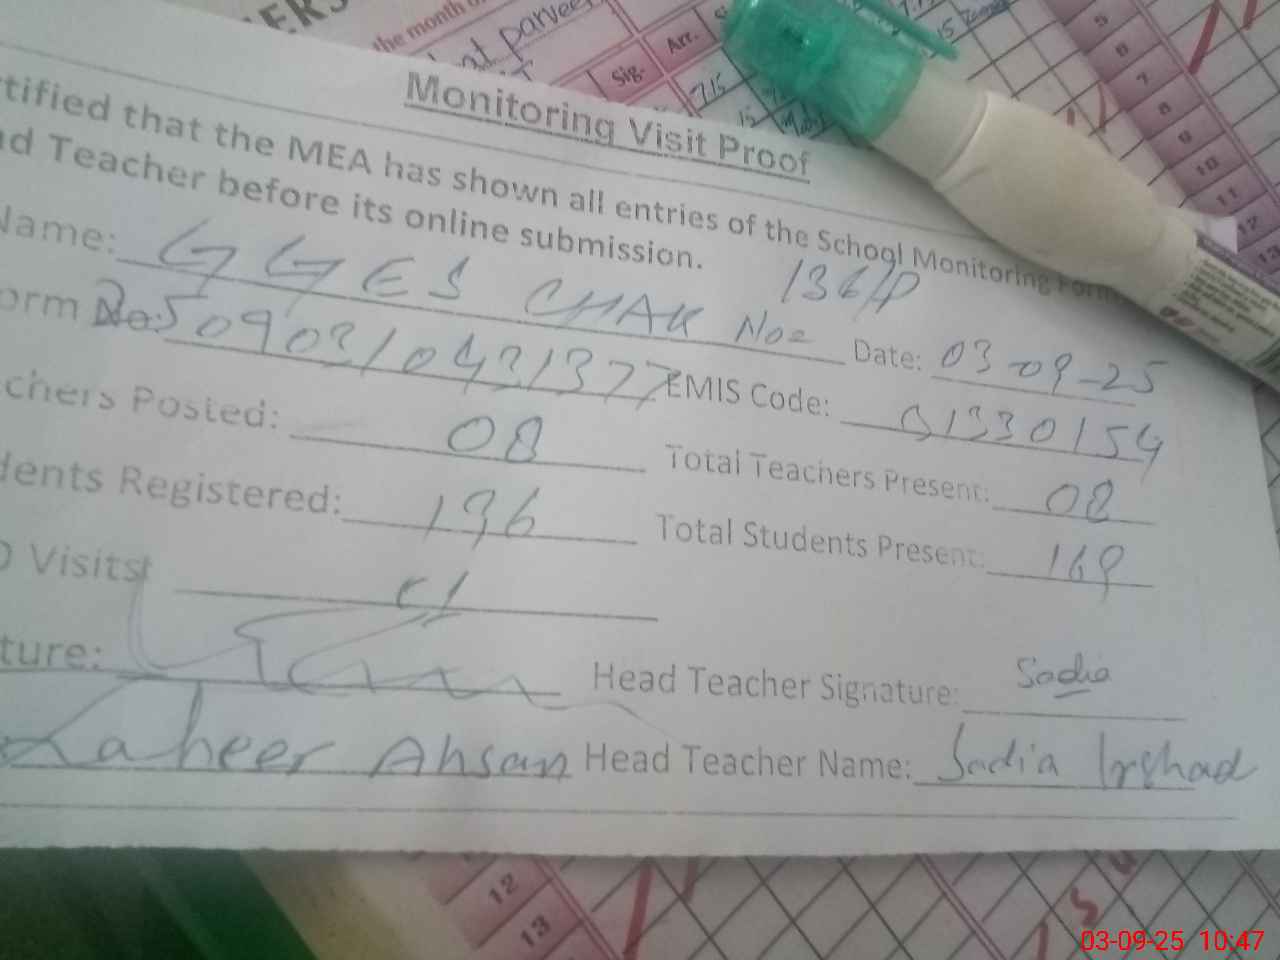 the month o
Sig-
Arr.
715
15
5
6
7
8
9
10
11
12
13
Monitoring Visit Proof
rtified that the MEA has shown all entries of the School Monitoring Form
ad Teacher before its online submission.
Name: GGES CHAK No= 136/P
Date: 03-09-25
orm No: 5090310431377
EMIS Code: 31330154
chers Posted: 08
Total Teachers Present: 08
dents Registered: 196
Total Students Present: 169
Visits:
ture:
Head Teacher Signature: Sadia
Zaheer Ahsan Head Teacher Name: Sadia Irshad
12
13
03-09-25 10:47